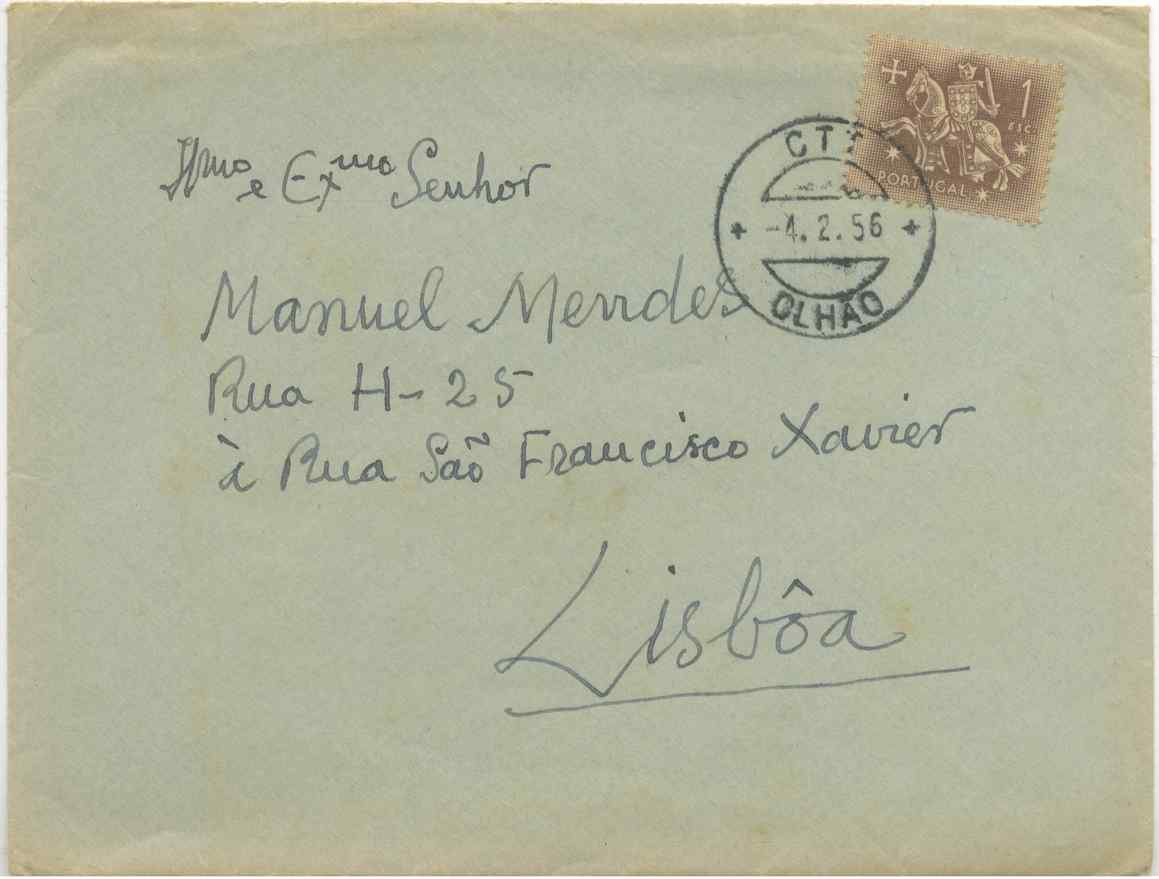 1
ESC.
PORTUGAL
CTT
-4.2.56
OLHÃO
Ilmo e Exmo Senhor
Manuel Mendes
Rua H-25
à Rua São Francisco Xavier
Lisbôa